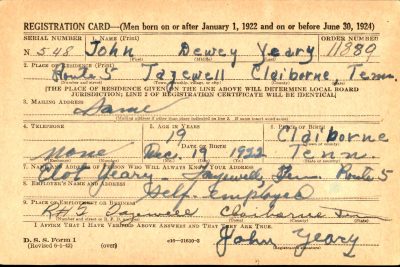 REGISTRATION CARD—(Men born on or after January 1, 1922 and on or before June 30, 1924)
SERIAL NUMBER 1. NAME (Print) ORDER NUMBER
N 548 John Dewey Yeary 11889
(First) (Middle) (Last)
2. PLACE OF RESIDENCE (Print)
Route 5 Tazewell Claiborne, Tenn.
[THE PLACE OF RESIDENCE GIVEN ON THE LINE ABOVE WILL DETERMINE LOCAL BOARD
JURISDICTION; LINE 2 OF REGISTRATION CERTIFICATE WILL BE IDENTICAL]
3. MAILING ADDRESS
Same
[Mailing address if other than place indicated on line 2. If same insert word same]
4. TELEPHONE 5. AGE IN YEARS 6. PLACE OF BIRTH
19 Claiborne
DATE OF BIRTH
None Dec. 19 1922 Tenn.
7. NAME AND ADDRESS OF PERSON WHO WILL ALWAYS KNOW YOUR ADDRESS
Yeary Tazewell Tenn. Route 5
8. EMPLOYER'S NAME AND ADDRESS
Self-employed
9. PLACE OF EMPLOYMENT OR BUSINESS
R#5 Tazewell Claiborne Tenn
I AFFIRM THAT I HAVE VERIFIED ABOVE ANSWERS AND THAT THEY ARE TRUE.
D. S. S. Form 1
(Revised 6-9-42) (over) 16—21630-2
John Yeary